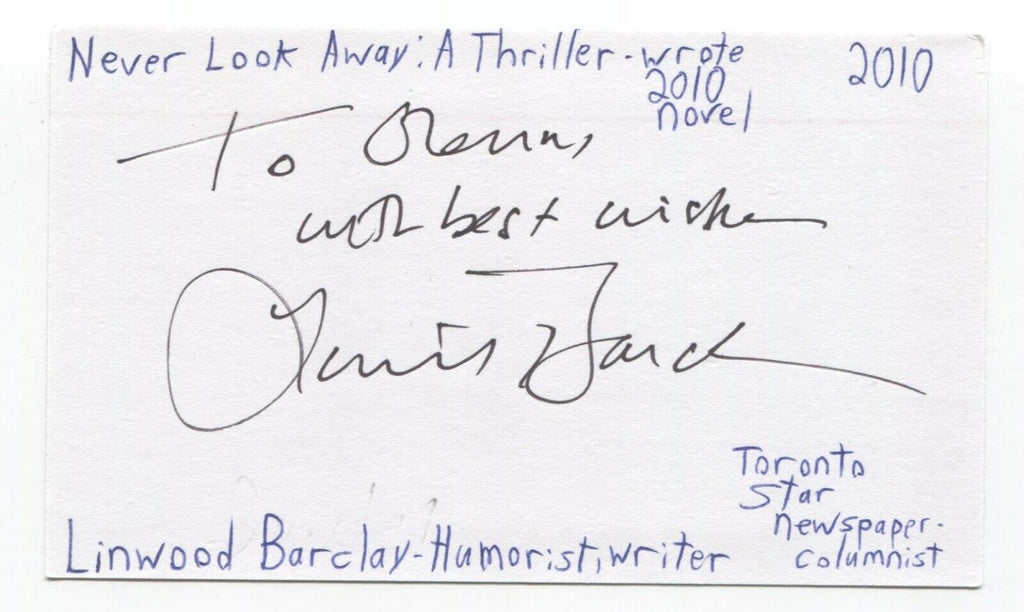 Never Look Away: A Thriller - wrote
2010
novel
2010
To Glenn,
with best wishes
Linwood Barclay - Humorist, writer
Toronto
Star
newspaper -
columnist